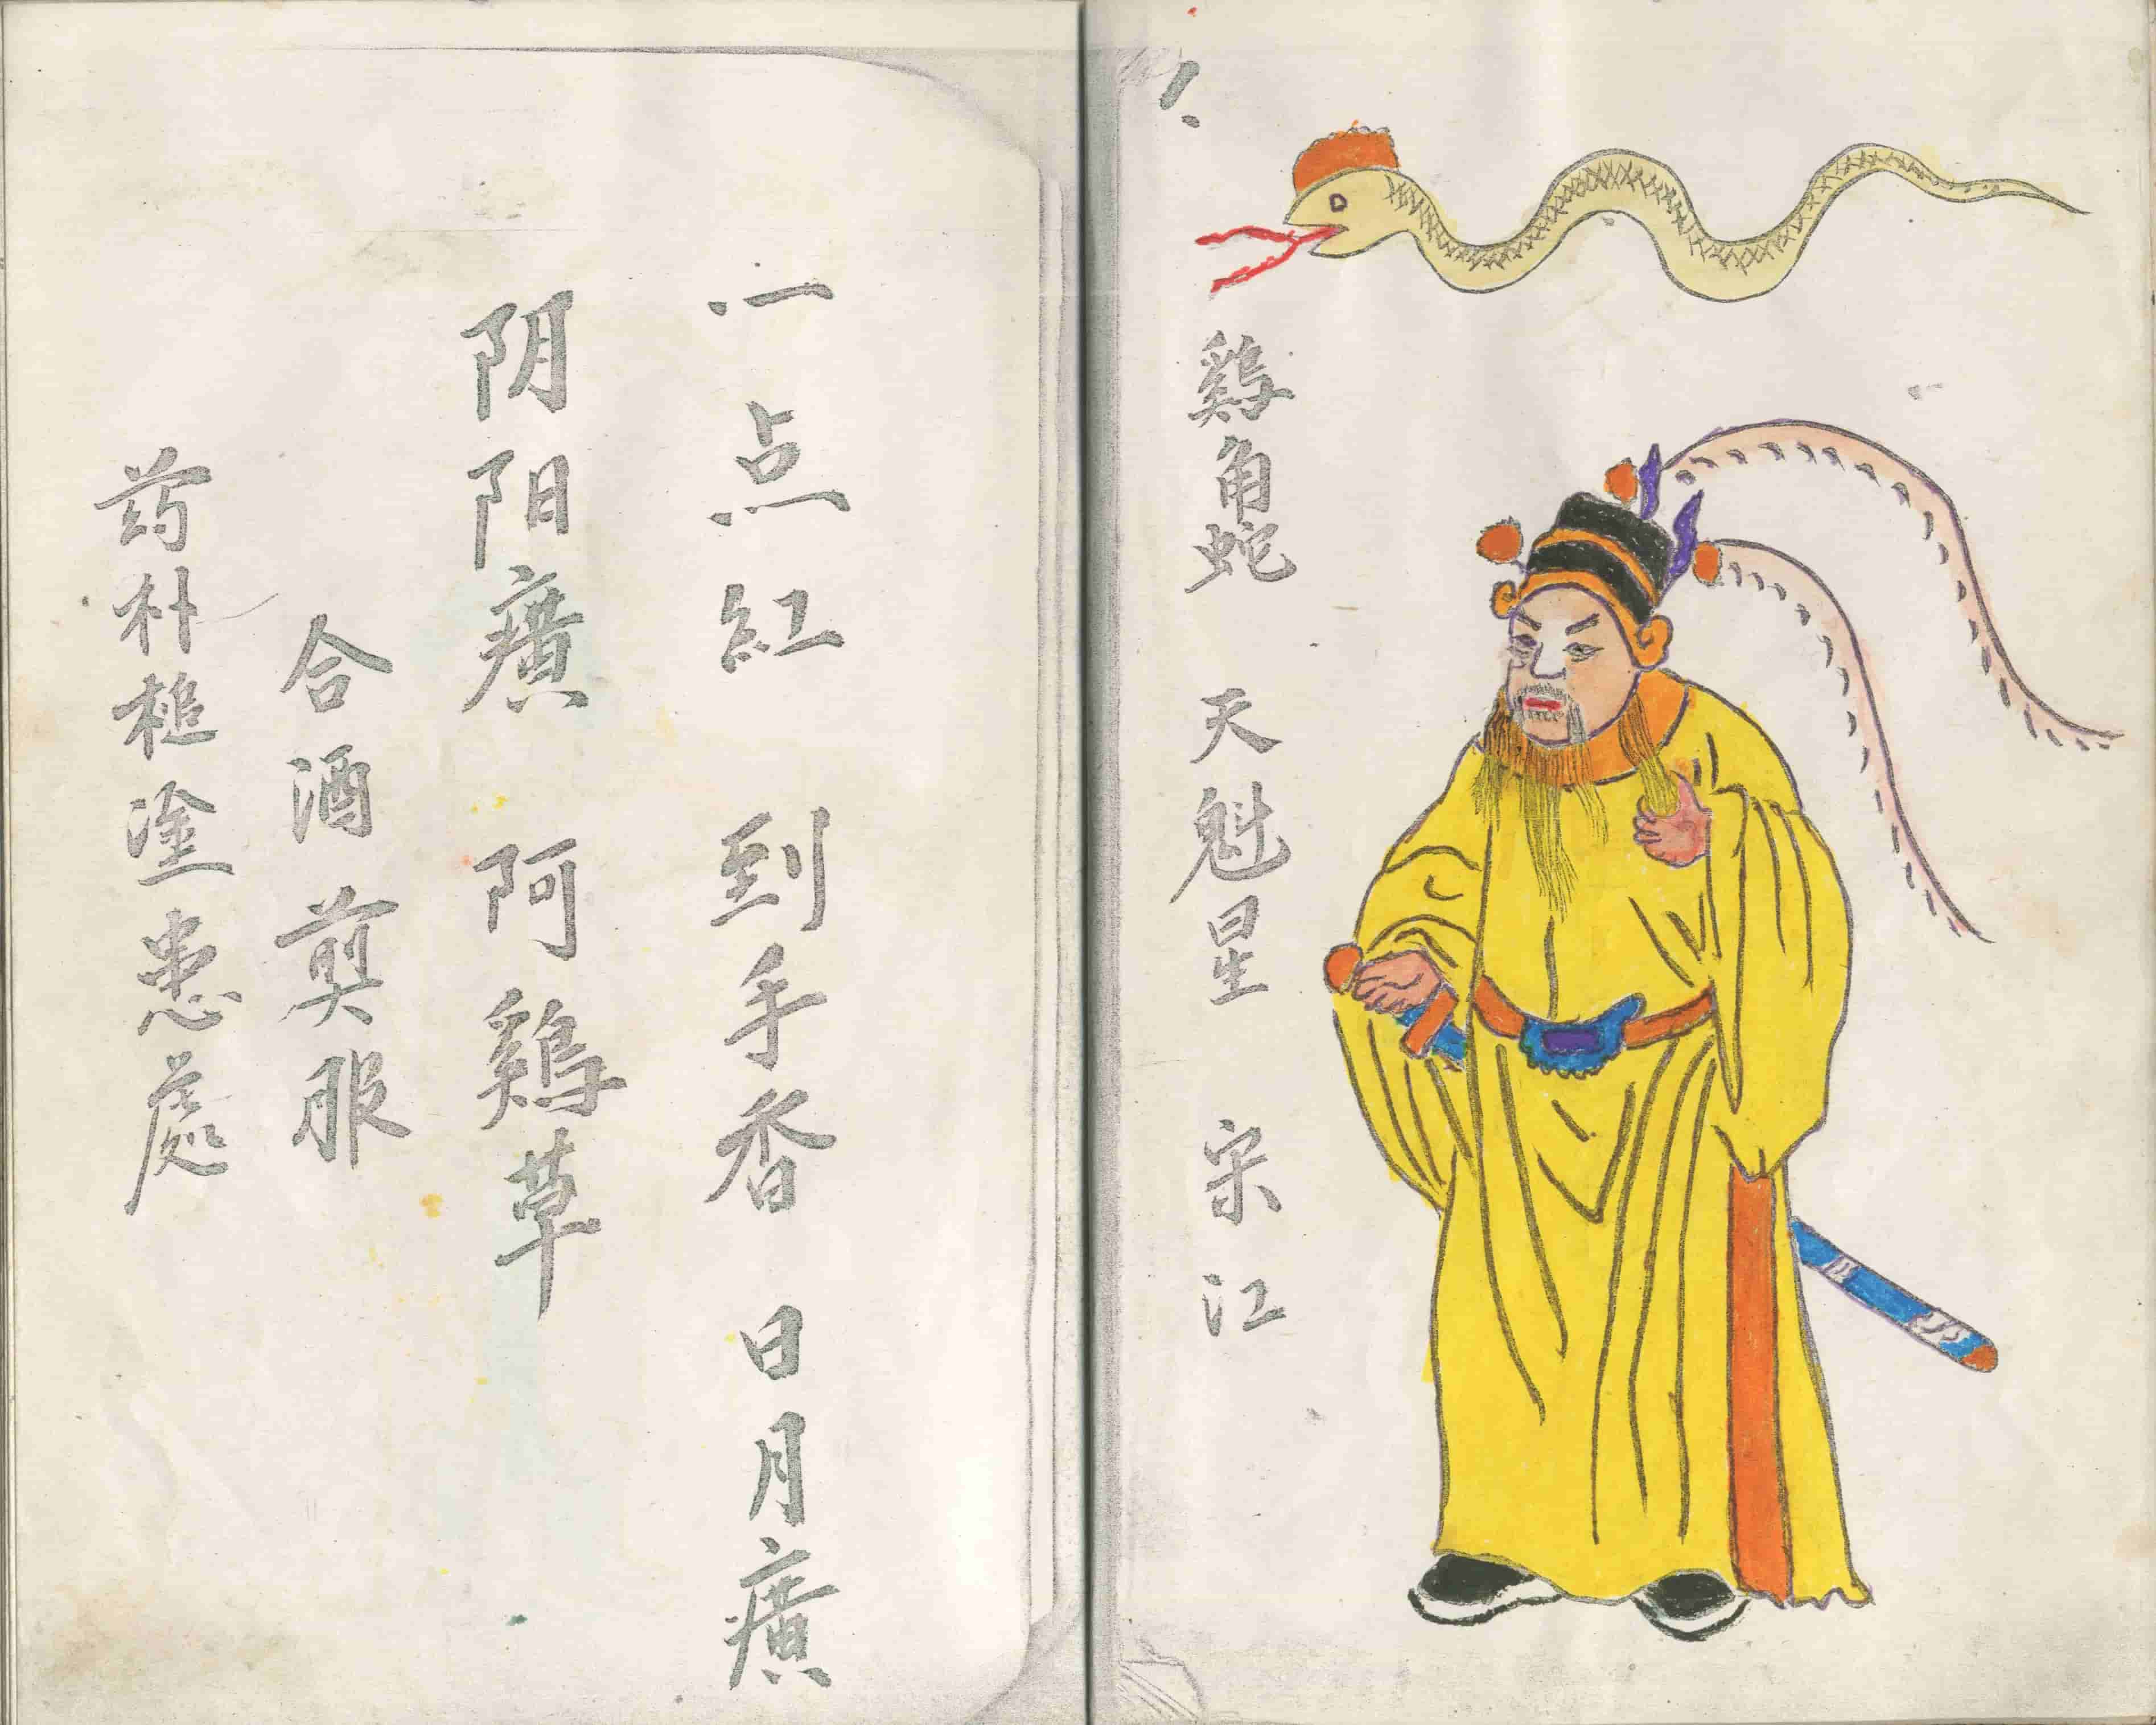 1.
鷄角蛇 天魁星 宋江
一点紅 到手香 日月癀
阴阳癀 阿鷄草
合酒煎服
药朴槌塗患處